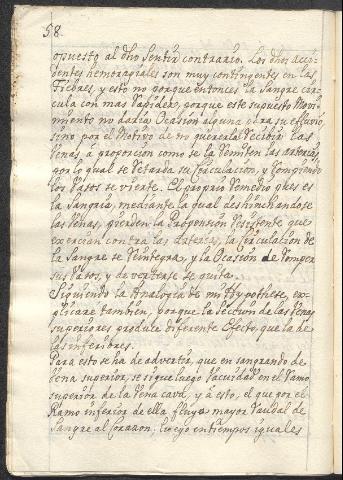 58.
opuesto al dho Sentir contrario. Los dhos acci-
dentes hemoragiales son muy contingentes en las
Fiebres, y esto no porque entonces la Sangre cir-
cula con mas Rapidez, porque este supuesto Movi-
miento no daria Ocasion alguna p.ra su efluvio
sino por el Motivo de no quererla Recibir las
Venas á proporcion como se la Remiten las arterias,
por lo qual se Retarda su Circulacion, y Rompiendo
los Vasos se vierte. El proprio Remedio q.e es es
la Sangria, mediante la qual deshinchandose
las Venas, pierden la Propension Resistente que
exercian contra las Arterias, la Circulacion de
la Sangre se Reintegra, y la Ocasion de Romper
sus Vasos, y de verterse se quita.
Siguiendo la Analogia de mi Hypothese, ex-
plicare tambien, porque la Seccion de las Venas
superiores produce diferente Efecto, que la de
las inferiores.
Para esto se ha de advertir, que en sangrando de
Vena superior, se sigue luego Vacuidad en el Ramo
superior de la Vena cava, y á esto, el que por el
Ramo inferior de ella fluye mayor Raudal de
Sangre al Corazon: luego en tiempos iguales